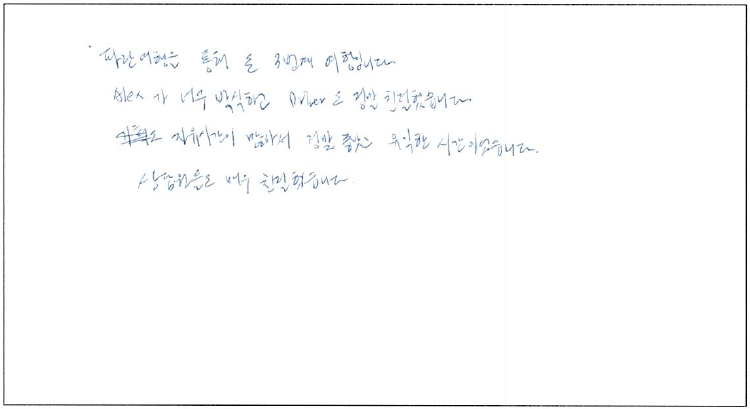 파란여행을 통해 온 3번째 여행입니다
Alex 가 너무 박식하고 Driver도 정말 친절했습니다
자유시간이 많아서 정말 좋았고 유익한 시간이었습니다.
상담원들도 매우 친절했습니다.